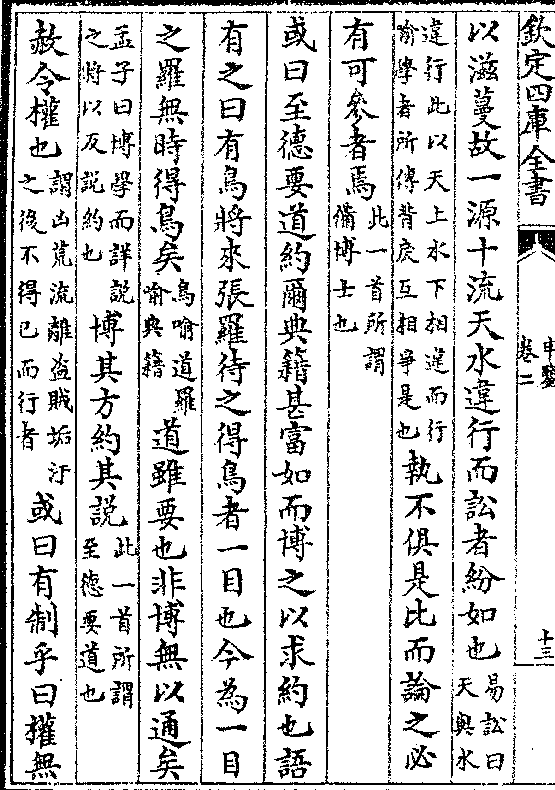 欽定四庫全書
申鑒
卷二
十三
以滋蔓故一源十流天水違行而訟者紛如也易訟曰天與水
違行此以天上水下相違而行喻學者所傳背戾互相爭是也執不俱是比而論之必
有可參者焉此一首所謂備博士也
或曰至德要道約爾典籍甚富如而博之以求約也語
有之曰有鳥將來張羅待之得鳥者一目也今為一目
之羅無時得鳥矣鳥喻道羅喻典籍道雖要也非博無以通矣
孟子曰博學而詳說之將以反說約也博其方約其說此一首所謂至德要道也
赦令權也謂凶荒流離盜賊垢汙之後不得已而行者或曰有制乎曰權無